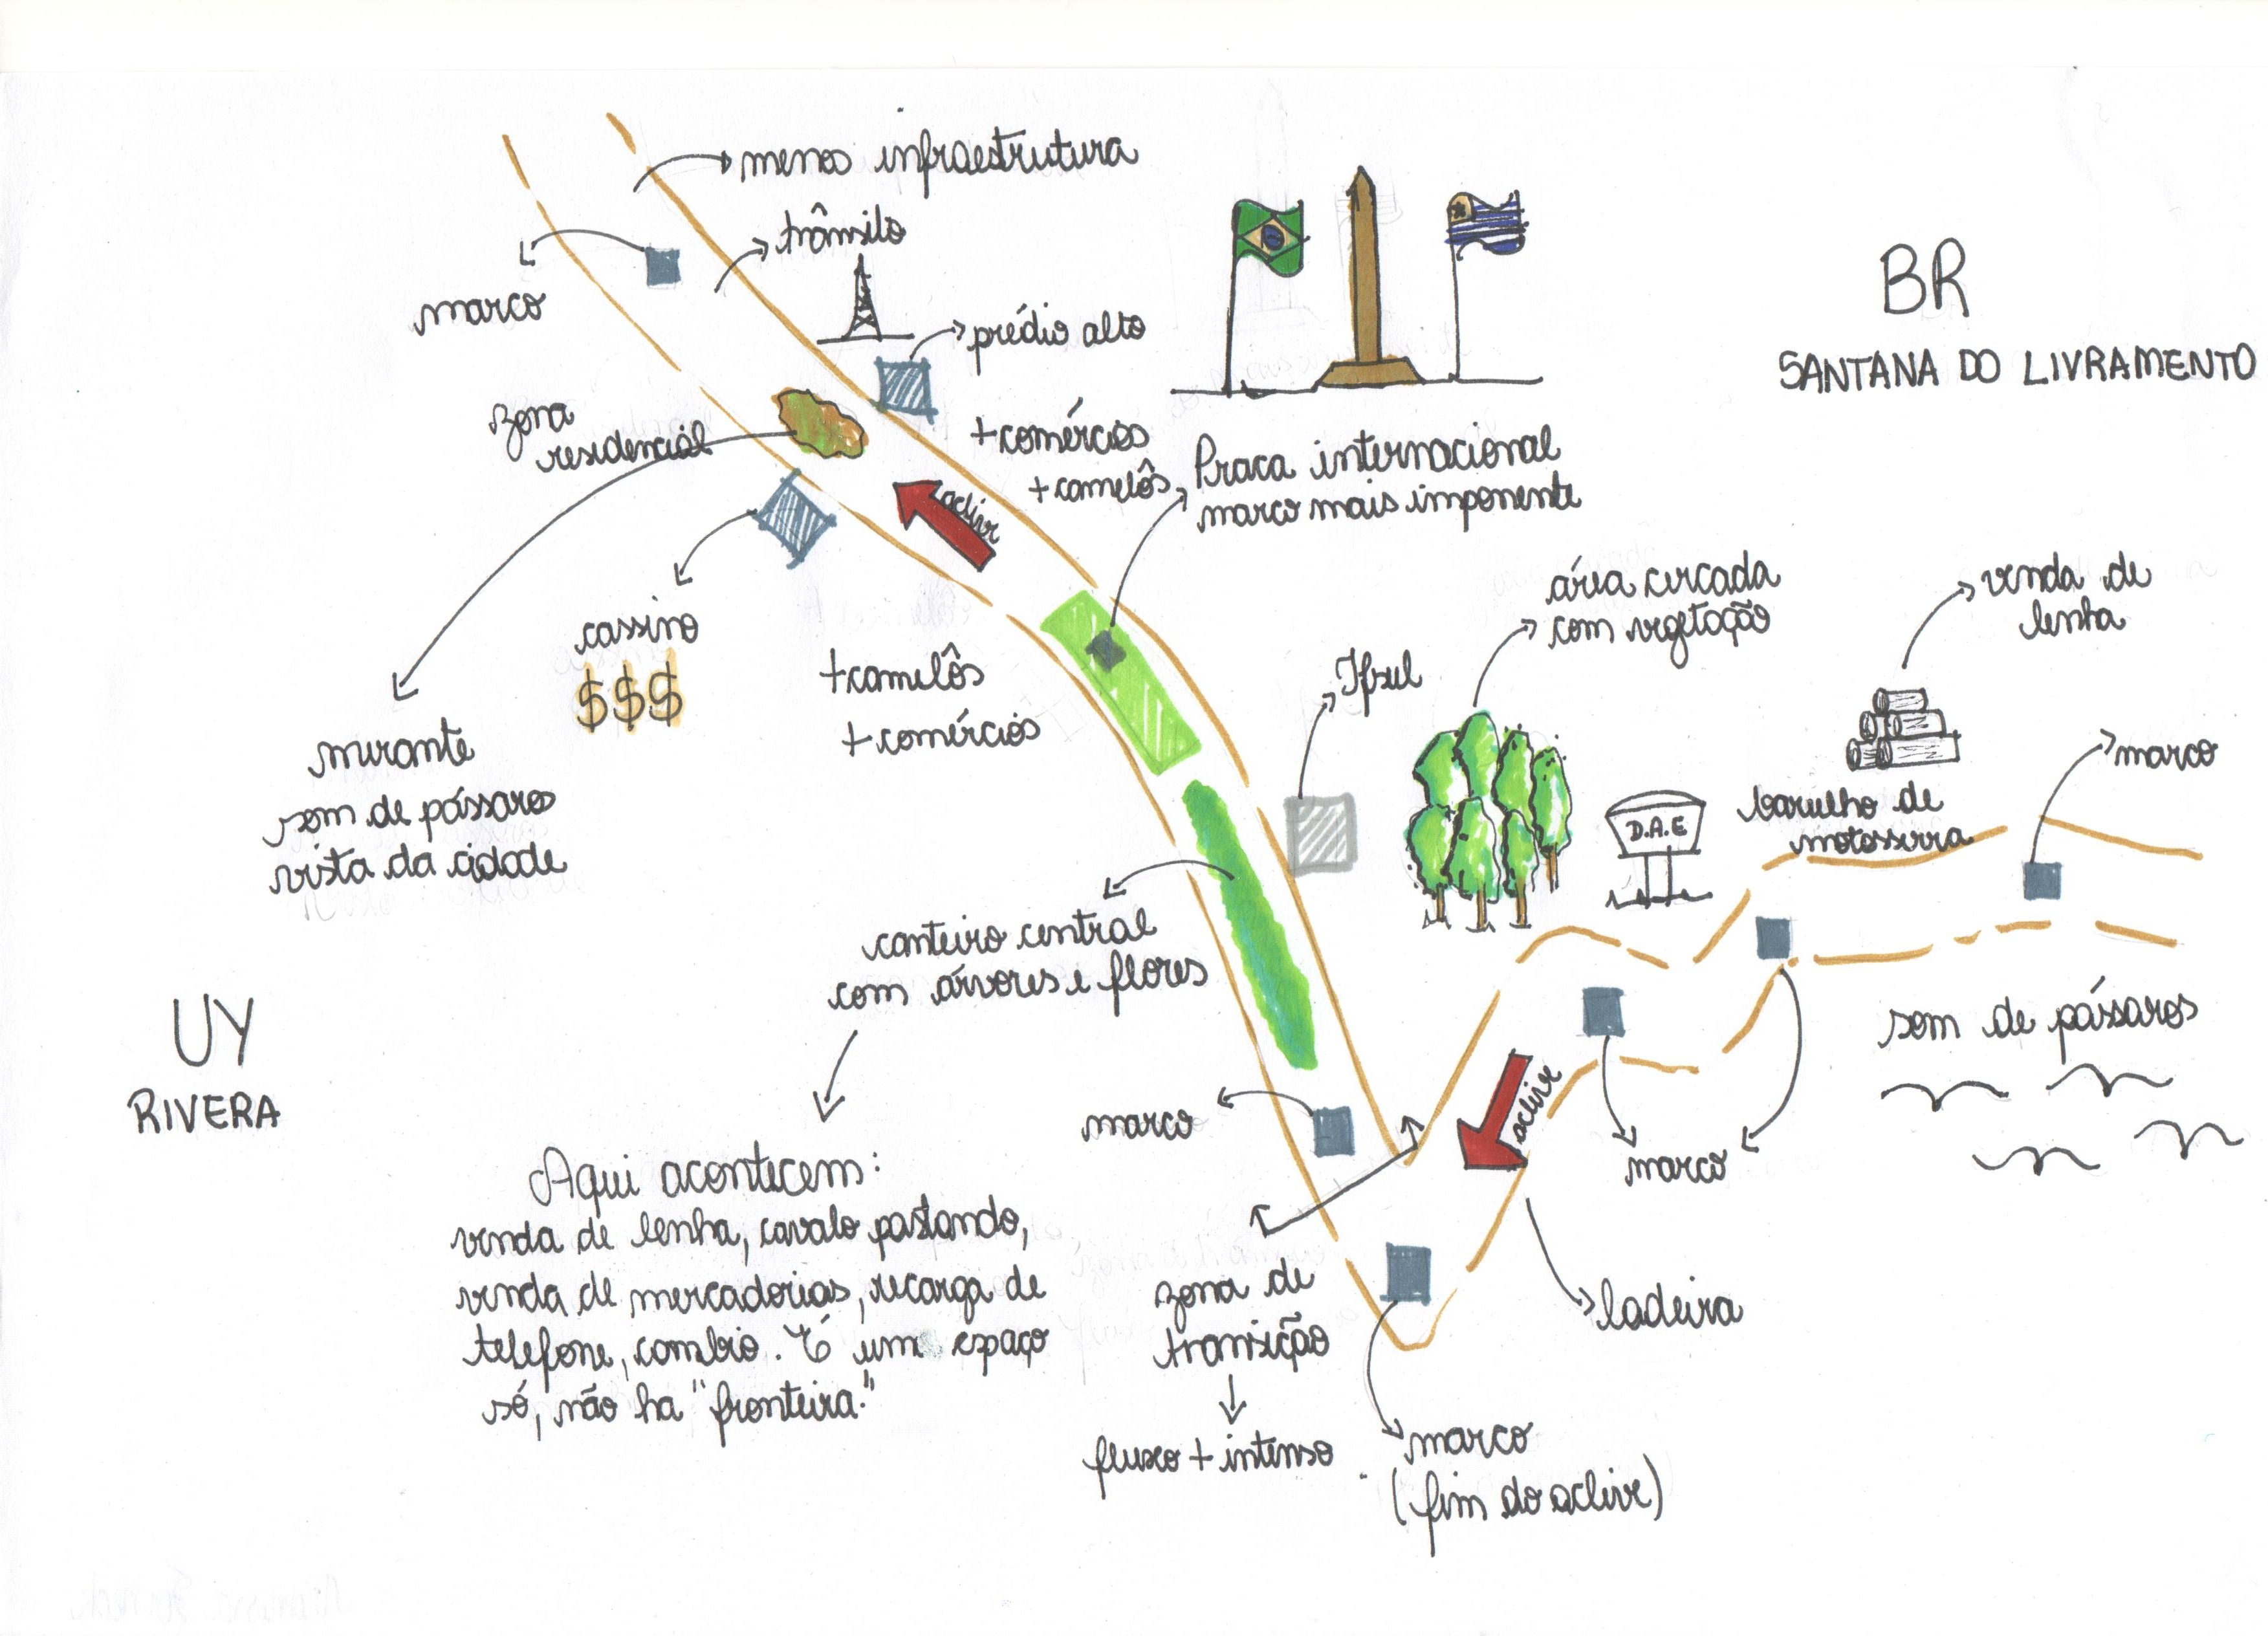 menos infraestrutura
trânsito
marco
prédio alto
zona
residencial
+comércios
+camelôs
Praca internacional
marco mais imponente
BR
SANTANA DO LIVRAMENTO
aclive
cassino
$$$
+camelôs
+comércios
mirante
som de pássaros
vista da cidade
Ifsul
área cercada
com vegetação
venda de
lenha
D.A.E
barulho de
motosserra
marco
canteiro central
com árvores e flores
UY
RIVERA
som de pássaros
marco
aclive
marco
Aqui acontecem:
venda de lenha, cavalo pastando,
venda de mercadorias, recarga de
telefone, cambio. É um espaço
só, não ha "fronteira."
zona de
transição
fluxo + intenso
ladeira
marco
(fim do aclive)